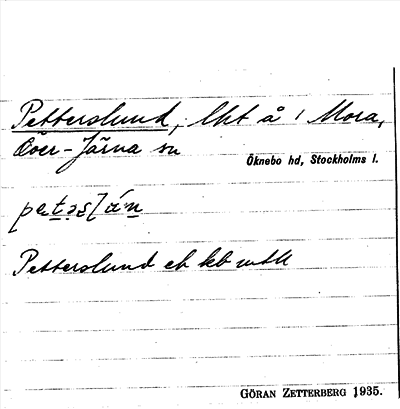 Petterslund, lht å 1 Mora,
Över-Järna sn
Öknebo hd, Stockholms l.
Petterslund eb kb
GÖRAN ZETTERBERG 1935.